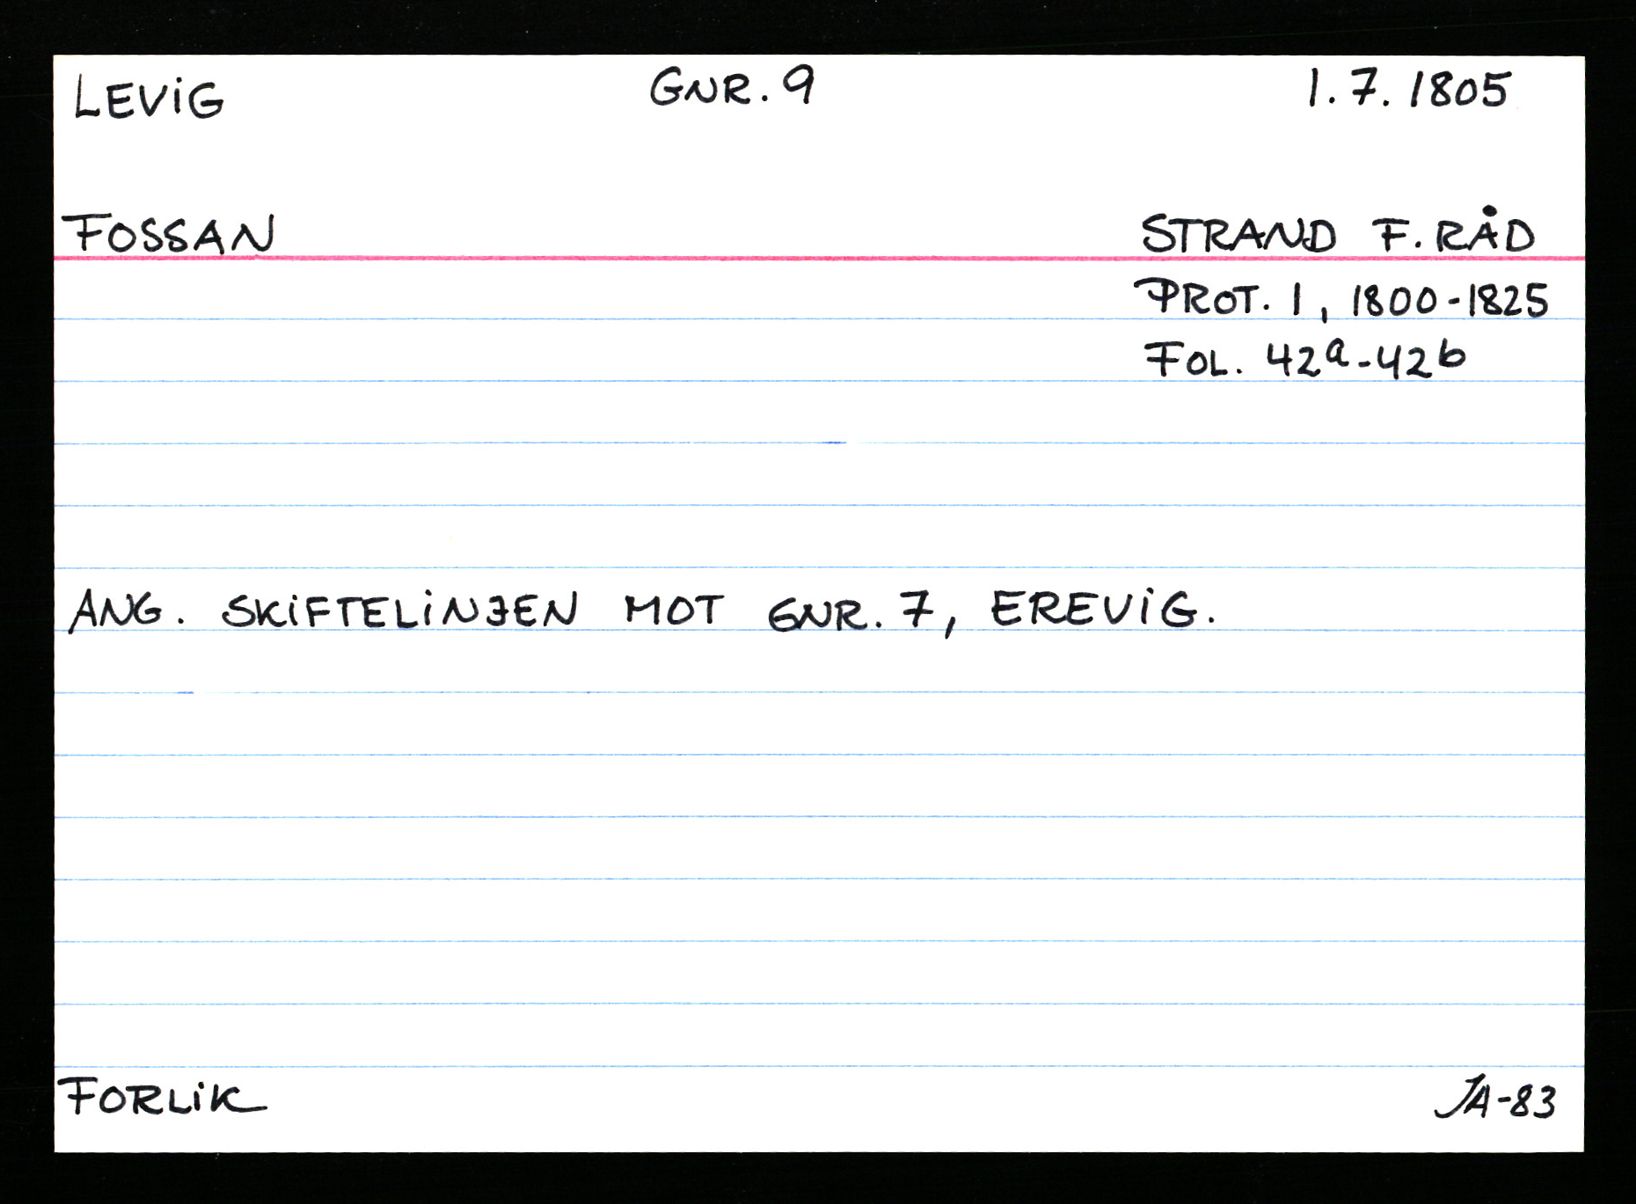 LEVIG GNR. 9 1.7.1805
FOSSAN STRAND F. RÅD
PROT. 1, 1800-1825
FOL. 42a-42b
ANG. SKIFTELINJEN MOT GNR. 7, EREVIG.
FORLIK JA-83